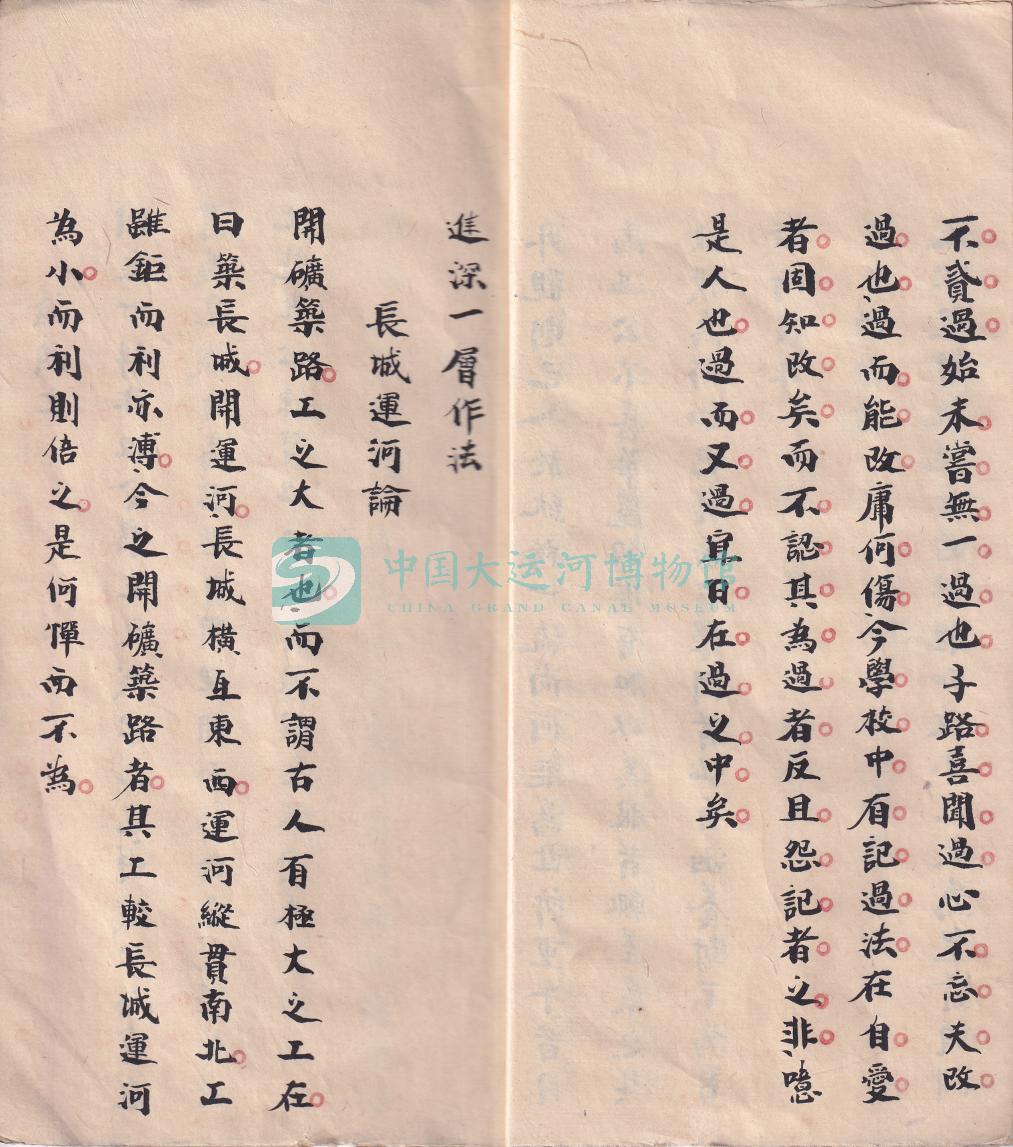 不貳過始未嘗無一過也子路喜聞過心不忘夫改
過也過而能改庸何傷今學校中有記過法在自愛
者固知改矣而不認其為過者反且怨記者之非噫
是人也過而又過宜日在過之中矣
進深一層作法
長城運河論
開礦築路工之大者也而不謂古人有極大之工在
曰築長城開運河長城橫亙東西運河縱貫南北工
雖鉅而利亦溥今之開礦築路者其工較長城運河
為小而利則倍之是何憚而不為
中国大运河博物馆
CHINA GRAND CANAL MUSEUM